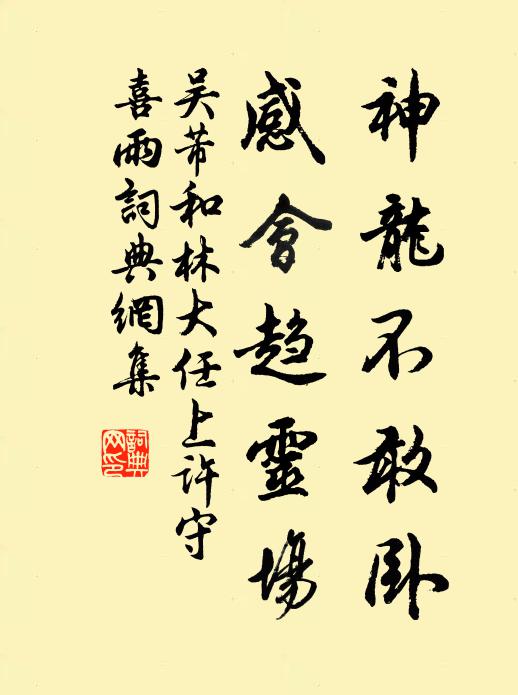 神龍不敢卧
感會趨靈場
吴芾和林大任上許守
喜雨詞典網集
詞典网印